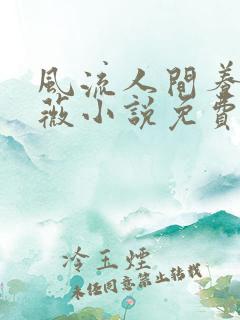 风流人間養
薇小说免費
冷玉煙
未经同意禁止转载